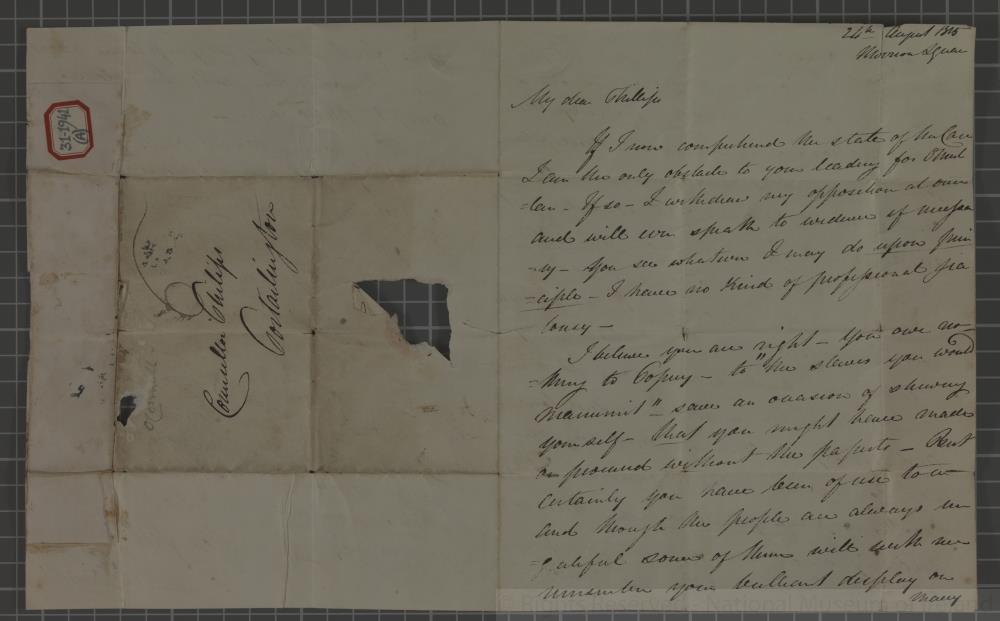 31-1941
(A)
Counsellor Philips
Portarlington
24th August 1815
Merrion Square
My dear Phillips
If I now comprehend the state of the Case
I am the only obstacle to your leading for
- If so - I withdraw my opposition at once
and will even speak to widow if necessa
=ry - You see whatever I may do upon prin
=ciple - I have no kind of professional jea
lousy -
I believe you are right - You owe no
=thing to Popery - to "the slaves you would
manumit" - save an occasion of shewing
yourself - that you might have made
or procured without the Papists - But
certainly you have been of use to us
and though the people are always un
=grateful some of them will with me
remember your brilliant display on
many
© National Museum of